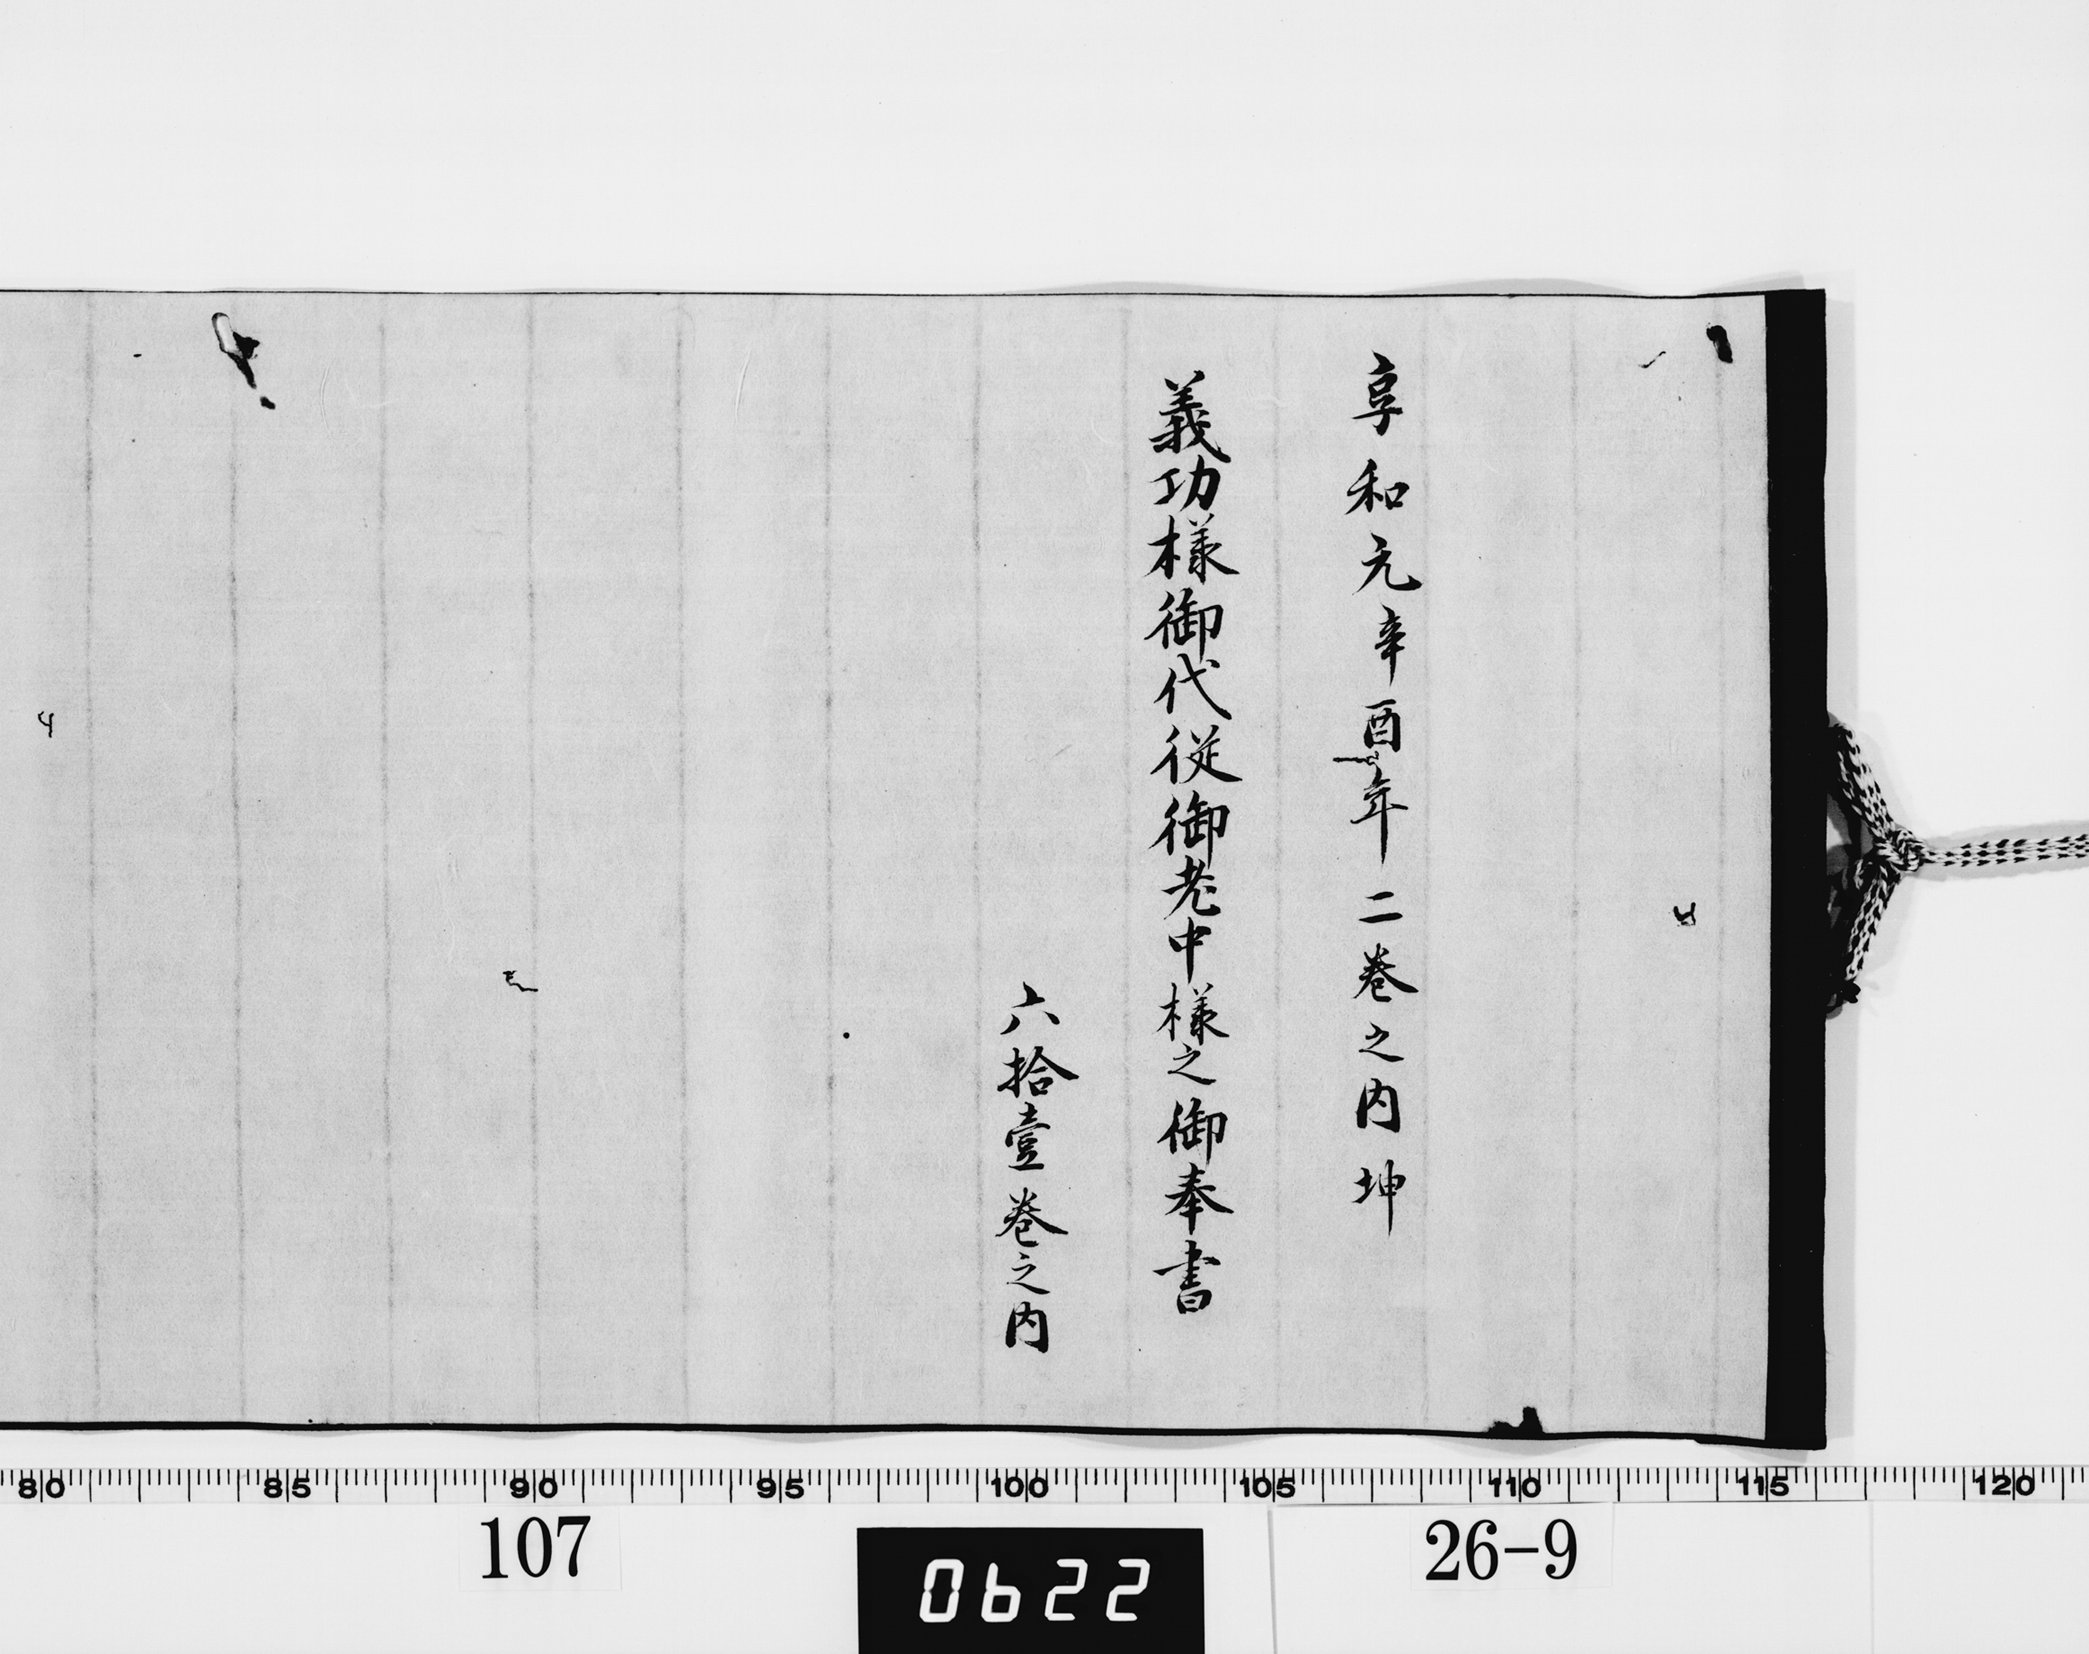 享和元辛酉年二巻之内坤
義功様御代従御老中様之御奉書
六拾壹巻之内
80 85 90 95 100 105 110 115 120
107
0622
26-9